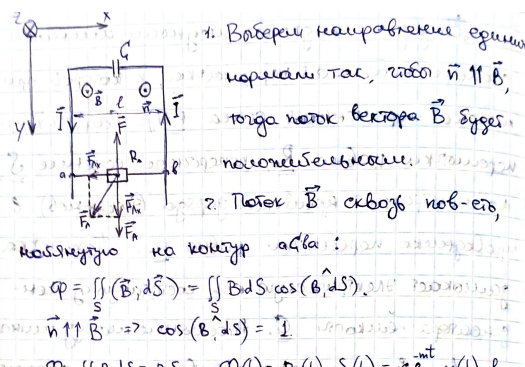 z x
y
C
B⃗ l n⃗
I⃗ I⃗
F⃗
R₀
a b
1. Выберем направление единич
нормали так, чтобы n⃗ ⇈ B⃗,
тогда поток вектора B⃗ будет
положительным.
2. Поток B⃗ сквозь пов-сть,
натянутую на контур aCba :
Φ = ∬ (B⃗, dS⃗) = ∬ B dS cos(B,^dS).
S S
n⃗ ↑↑ B⃗ => cos(B,^dS) = 1.